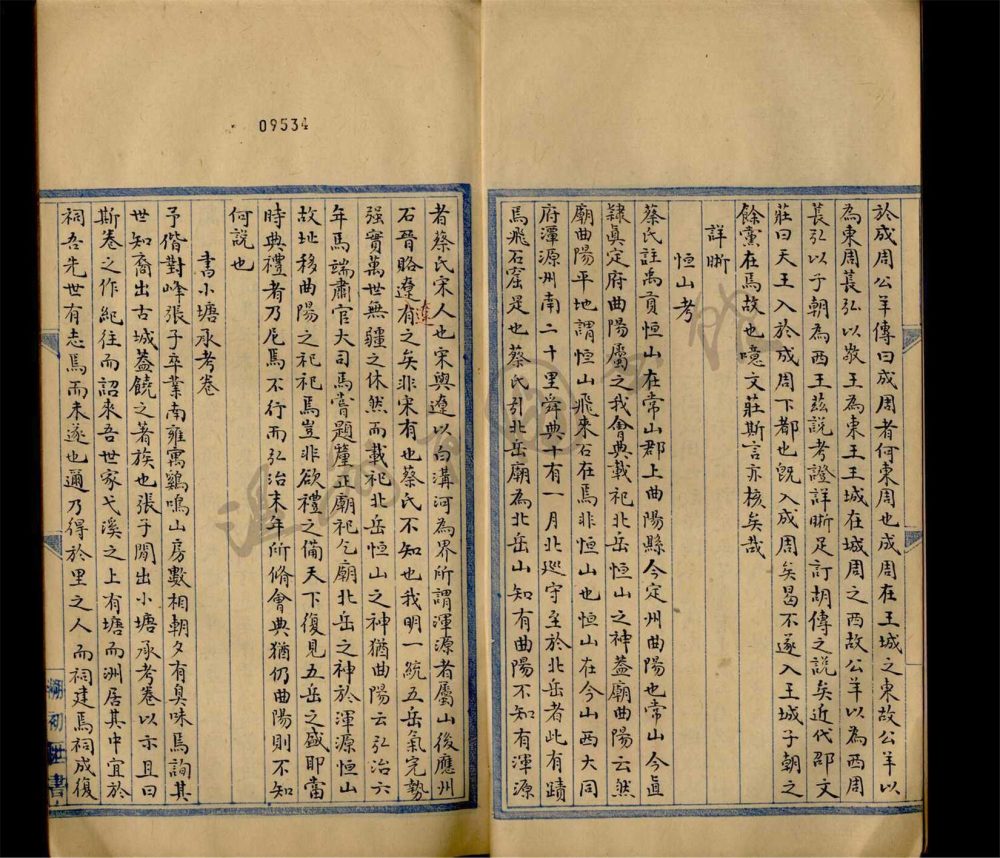 於成周公羊傳曰成周者何東周也成周在王城之東故公羊以
為東周萇弘以敬王為東王王城在城周之西故公羊以為西周
萇弘以子朝為西王茲説考證詳晰足訂胡傳之説矣近代邵文
莊曰天王入於成周下都也既入成周矣曷不遂入王城子朝之
餘黨在焉故也噫文莊斯言亦核矣哉
詳晰
恒山考
蔡氏註禹貢恒山在常山郡上曲陽縣今定州曲陽也常山今真
隸真定府曲陽屬之我會典載祀北岳恒山之神蓋廟曲陽云然
廟曲陽平地謂恒山飛來石在焉非恒山也恒山在今山西大同
府渾源州南二十里舜典十有一月北巡守至於北岳者此有蹟
焉飛石窟是也蔡氏引北岳廟為北岳山知有曲陽不知有渾源
者蔡氏宋人也宋與遼以白溝河為界所謂渾源者屬山後應州
石晉賂遼有之矣非宋有也蔡氏不知也我明一統五岳氣完勢
强實萬世無疆之休然而載祀北岳恒山之神猶曲陽云弘治六
年馬端肅官大司馬嘗題釐正廟祀乞廟北岳之神於渾源恒山
故址移曲陽之祀祀焉豈非欲禮之備天下復見五岳之盛即當
時典禮者乃尼焉不行而弘治末年所脩會典猶仍曲陽則不知
何説也
書小塘承考卷
予偕對峰張子卒業南雍寓鷄鳴山房數相朝夕有臭味焉詢其
世知裔出古城蓋饒之著族也張子閒出小塘承考卷以示且曰
斯卷之作紀往而詔來吾世家弋溪之上有塘而洲居其中宜於
祠吾先世有志焉而未遂也邇乃得於里之人而祠建焉祠成復
09534